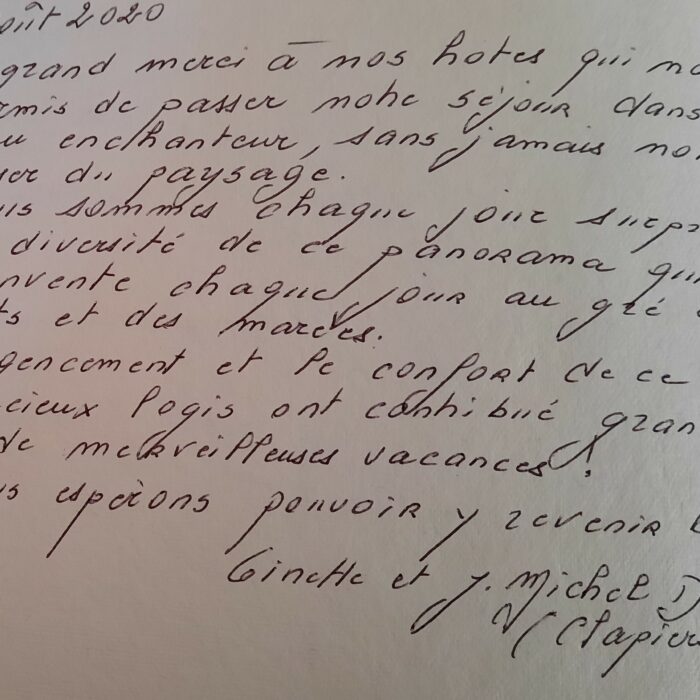 oût 2020
grand merci à nos hotes qui no
rmis de passer notre séjour dans
u enchanteur, sans jamais no
er du paysage.
us sommes chaque jour surpr
diversité de ce panorama qui
nvente chaque jour au gré
ts et des marées.
gencement et le confort de ce
cieux logis ont contribué gran
de merveilleuses vacances !
s espérons pouvoir y revenir
Ginette et J. Michel D
(Clapier